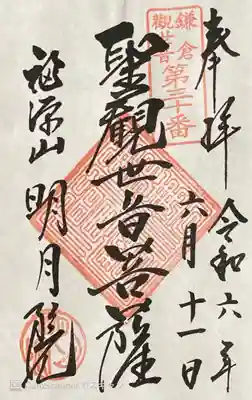 奉拝
令和六年
六月十一日
鎌倉
観世音
第三十番
聖観世音菩薩
福源山
明月院